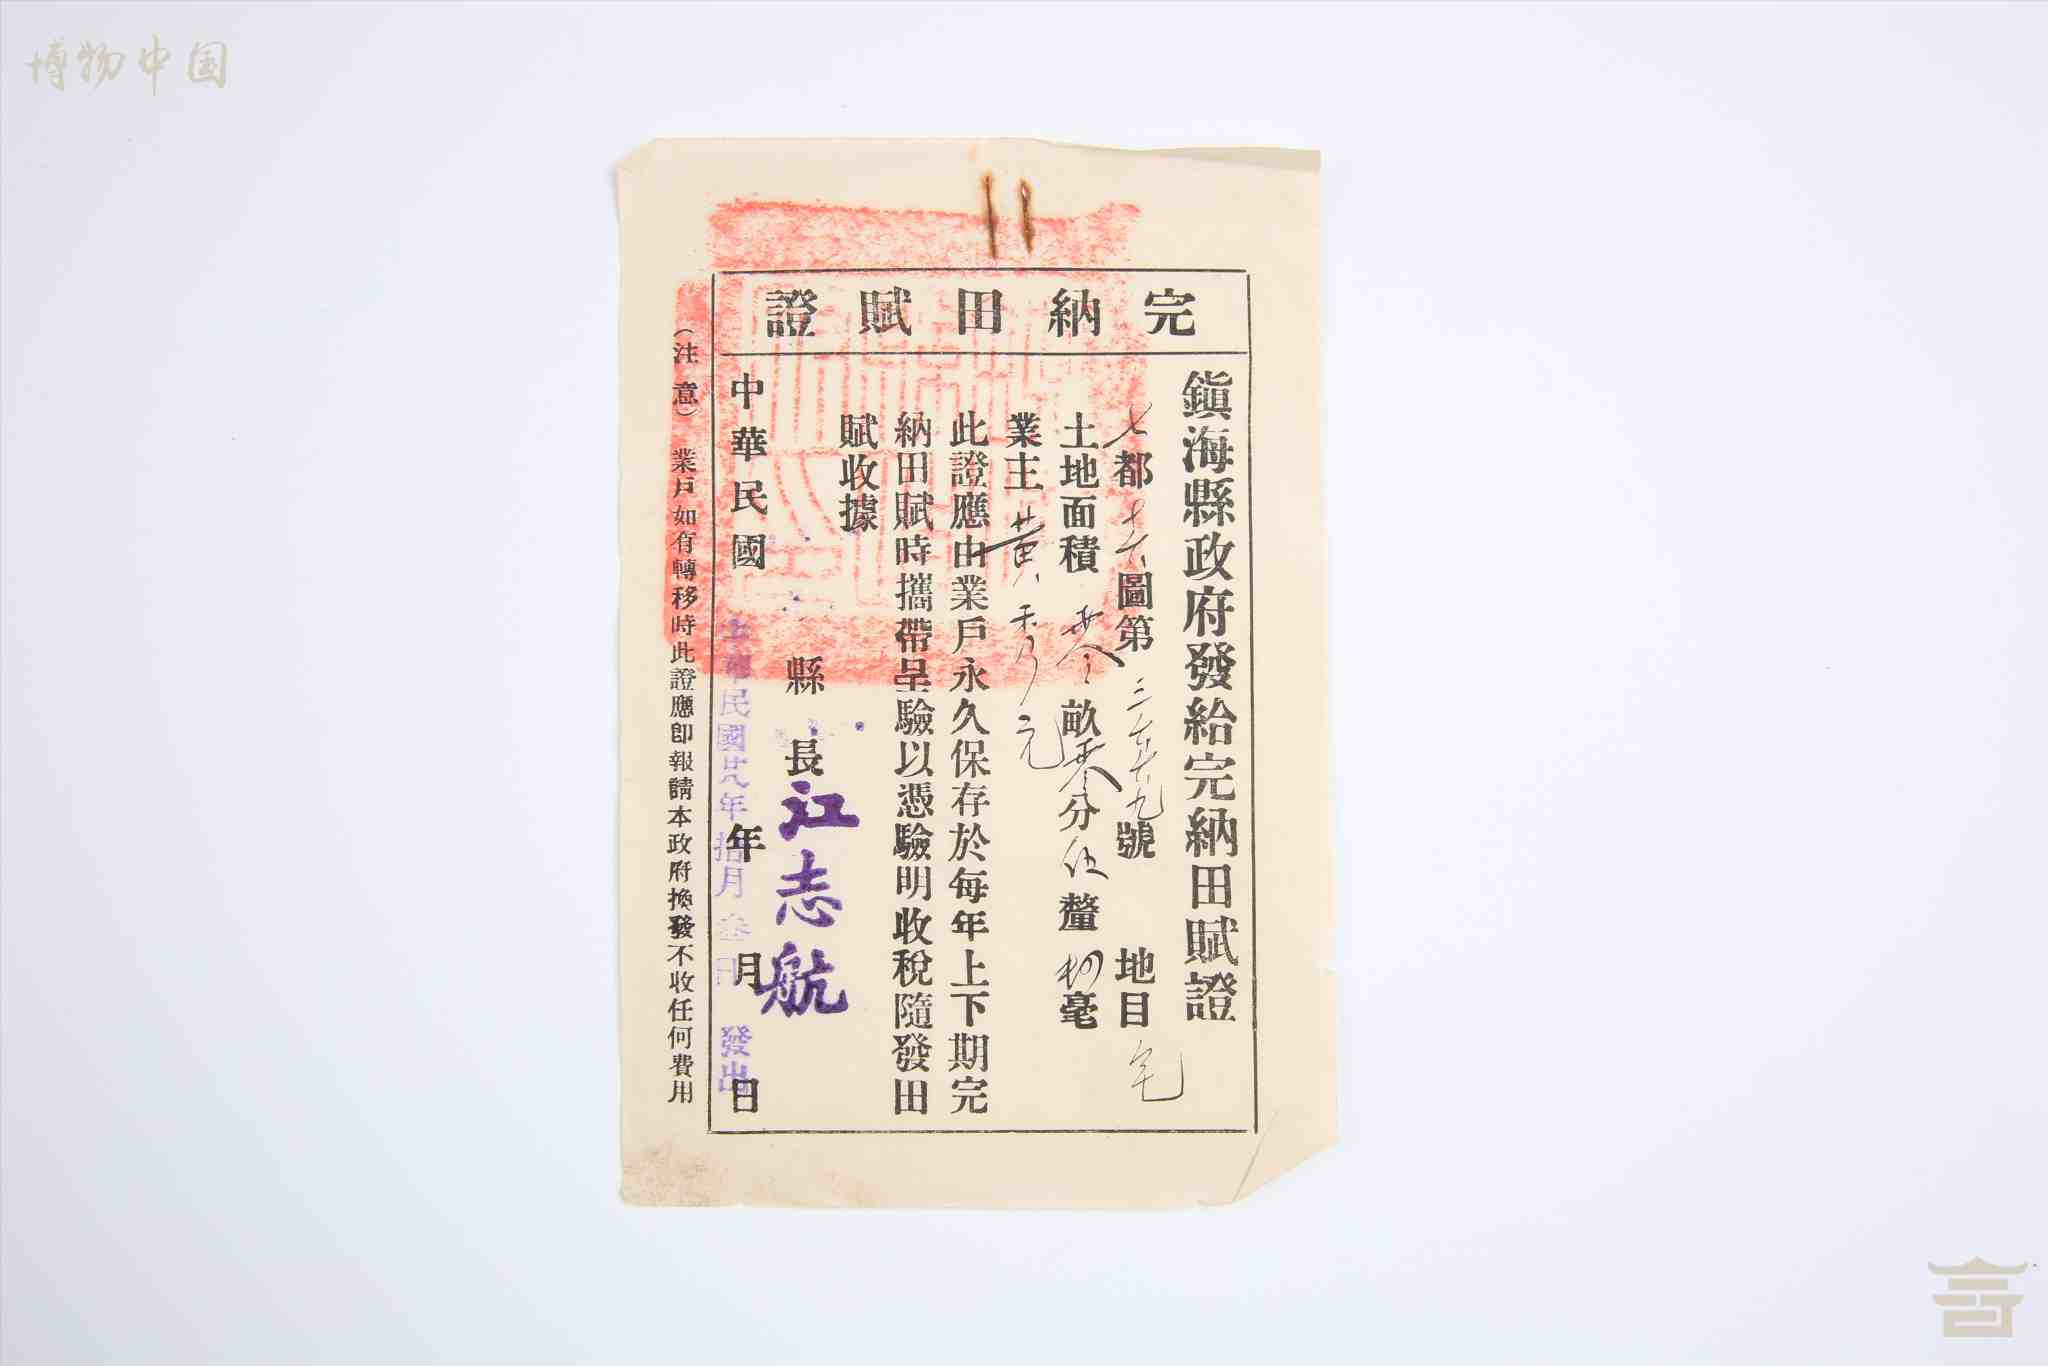 博物中国
完納田賦證
鎮海縣政府發給完納田賦證
七都十六圖第號 地目宅
土地面積零畝零分伍釐毫
業主黃秀元
此證應由業戶永久保存於每年上下期完
納田賦時攜帶呈驗以憑驗明收稅隨發田
賦收據
縣長江志航
中華民國 年 月 日
中華民國廿八年拾月叁日發出
(注意)業戶如有轉移時此證應即報請本政府換發不收任何費用